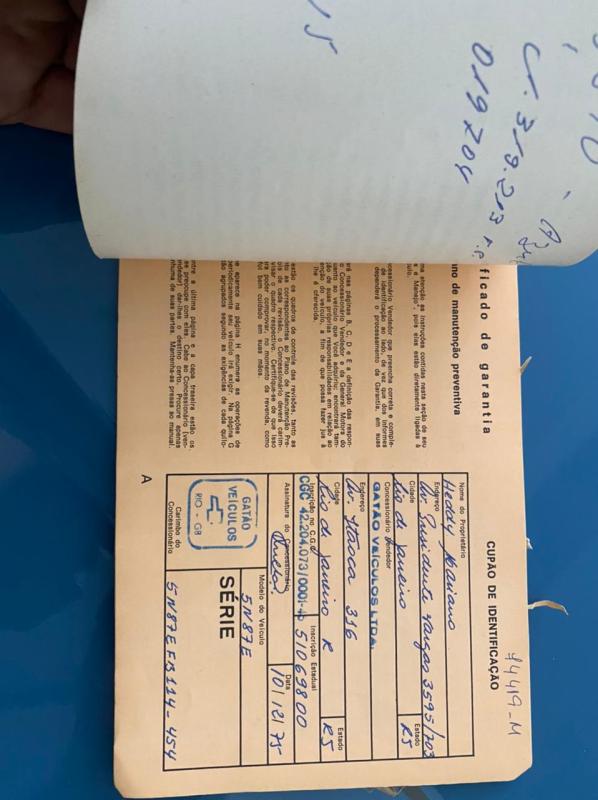 019704
15
ificado de garantia
ano de manutenção preventiva
ma atenção as Instruções contidas nesta seção de seu
s e Manejo", pois elas estão diretamente ligadas à
ulo.
cessionário Vendedor que preencha correta e comple-
de identificação ao lado, de vez que dos informes
dependerá o processamento da Garantia, em suas
erá nas páginas B, C, D e E a definição das respon-
o Concessionário Vendedor e da General Motors do
uanto ao veículo que Você adquiriu; encontrará tam-
ção de suas próprias responsabilidades em relação ao
enção do veículo, a fim de que possa fazer jus à
lhe é oferecida.
estão os quadros de controle das revisões, tanto as
to as correspondentes ao Plano de Manutenção Pre-
ois de cada revisão, o Concessionário deverá carim-
visar o quadro respectivo. Certifique-se de que isso
ra poder comprovar, no momento da revenda, como
foi bem cuidado em suas mãos.
e aparece na página H enumera as operações de
periodicamente seu veículo irá exigir. Na página G
tão agrupados segundo as exigências de cada quilo-
ntre a última página e a capa traseira estão os
se preocupe com eles. Cabe ao Concessionário (ven-
ndedor) dar-lhes o destino certo. Procure apenas
nhuma de suas partes. Mantenha-as presas ao manual.
A
14419-M
CUPÃO DE IDENTIFICAÇÃO
Nome do Proprietário
Endereço
Av. Presidente Vargas 3595/703
Cidade
Rio de Janeiro
Estado
RJ
Concessionário Vendedor
GATÃO VEÍCULOS LTDA.
Endereço
Av. Itaoca 316
Cidade
Rio de Janeiro R
Estado
RJ
Inscrição no C.G.C.
CGC 42.204.073/0001-
Inscrição Estadual
51069800
Assinatura do Concessionário
Data
10/12/75
GATÃO
VEÍCULOS
RIO - GB
Carimbo do
Concessionário
Modelo do Veículo
5N87E
SÉRIE
5N87EFB114-454